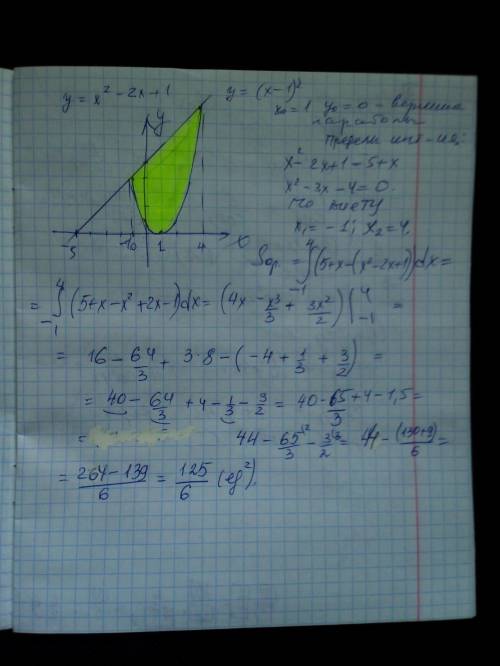 y = x² - 2x + 1
y = (x-1)²
x₀ = 1 y₀ = 0 - вершина
параболы
Пределы инт-ия:
x² - 2x + 1 = 5 + x
x² - 3x - 4 = 0.
По Виету
x₁ = -1; x₂ = 4.
y
-5 -1 0 1 4 x
= ∫₋₁⁴ (5+x-(x²-2x+1))dx =
= ∫₋₁⁴ (5+x-x²+2x-1)dx = (4x - x³/3 + 3x²/2) |₋₁⁴ =
= 16 - 64/3 + 3·8 - (-4 + 1/3 + 3/2) =
= 40 - 64/3 + 4 - 1/3 - 3/2 = 40 - 65/3 + 4 - 1,5 =
= 44 - 65/3 - 3/2 = 44 - (130+9)/6 =
= (264-139)/6 = 125/6 (ед²).